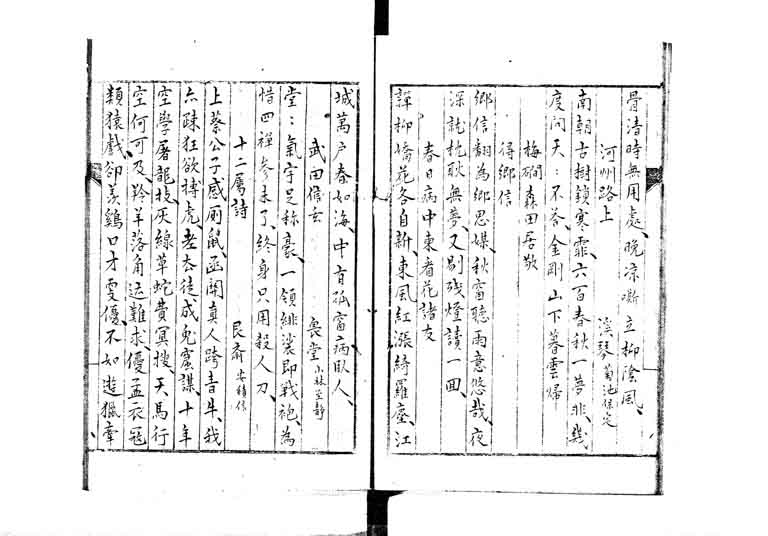 骨清時無用處、晚凉嘶立柳陰風、
河州路上 溪琴菊池保定
南朝古樹鎖寒霏、六百春秋一夢非、幾
度問天〻不答、金剛山下暮雲歸
梅磵森田居敬
得鄉信
鄉信翻為鄉思媒、秋窗聽雨意悠哉、夜
深就枕耿無夢、又剔殘燈讀一回
春日病中柬看花諸友
嚲柳嬌花各自新、東風紅漲綺羅塵、江
城萬戶春如海、中有孤窗病臥人、
武田信玄 畏堂小林至靜
堂〻氣宇足称豪、一領緋裟即戰袍、為
惜四禪參未了、終身只用殺人刀、
十二屬詩 艮齋安積信
上蔡公子感厠鼠、函關真人跨青牛、我
亦疎狂欲搏虎、老去徒成兔窟謀、十年
空學屠龍技、灰線草蛇費冥搜、天馬行
空何可及、羚羊落角迹難求、優孟衣冠
類猿戲、卻羨鷄口才更優、不如遊獵牽